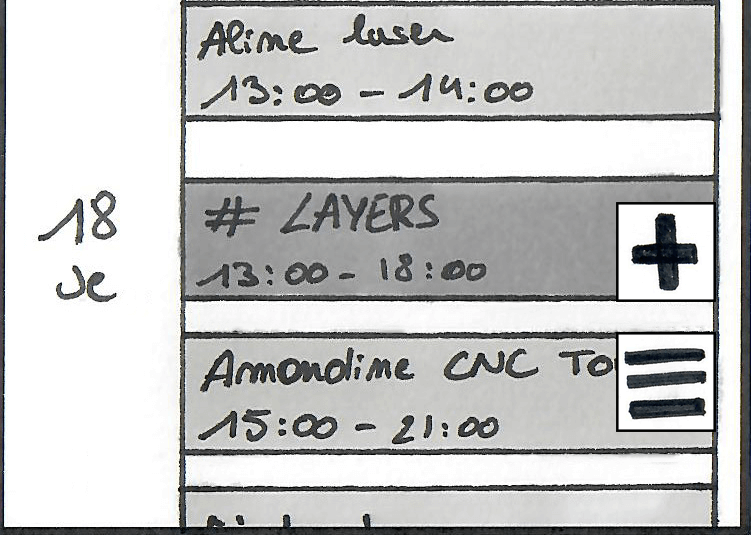 Aline laser
13:00 - 14:00
18
Je
# LAYERS
13:00 - 18:00
Amandine CNC
15:00 - 21:00